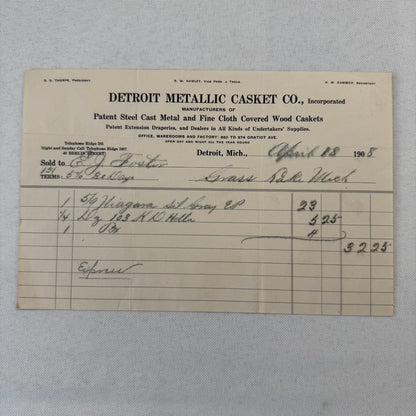 S. S. THORPE, President
R. W. HAWLEY, Vice Pres. & Treas.
H. W. HAMMER, Secretary
DETROIT METALLIC CASKET CO., Incorporated
MANUFACTURERS OF
Patent Steel Cast Metal and Fine Cloth Covered Wood Caskets
Patent Extension Draperies, and Dealers in All Kinds of Undertakers' Supplies.
OFFICE, WAREROOMS AND FACTORY: 863 TO 874 GRATIOT AVE.
OPEN DAY AND NIGHT ALL THE YEAR ROUND
Telephone Ridge 285
Night and Sunday Call Telephone Ridge
Detroit, Mich., April 28 1908
Sold to E J Foster
TERMS: 5% 30 Days Grass Lake Mich
1 5/9 Niagara Sil Gray EP 23
1/4 Dz 103 K D 5 25
1 4
32 25
Express